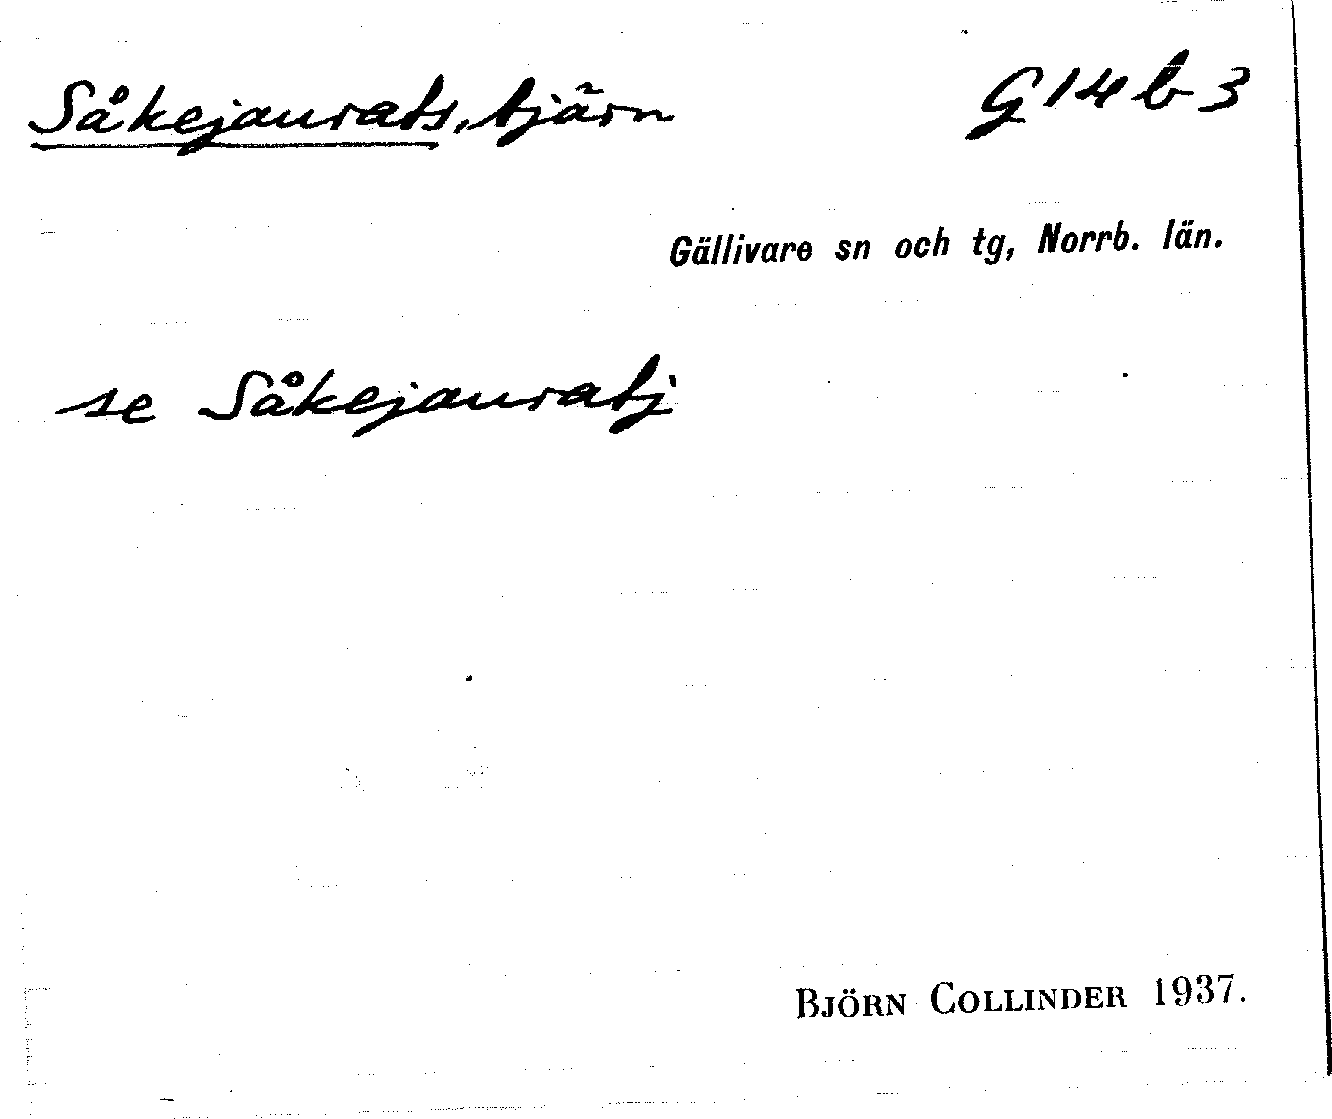 Såkejaurats, tjärn G 14 b 3
Gällivare sn och tg, Norrb. län.
se Såkejauratj
BJÖRN COLLINDER 1937.